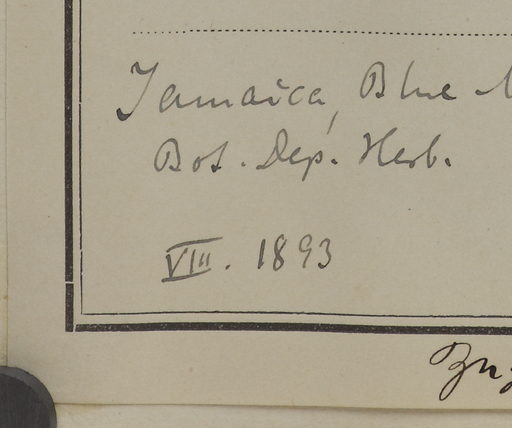 Jamaica, Blue
Bot. Dep. Herb.
VIII. 1893